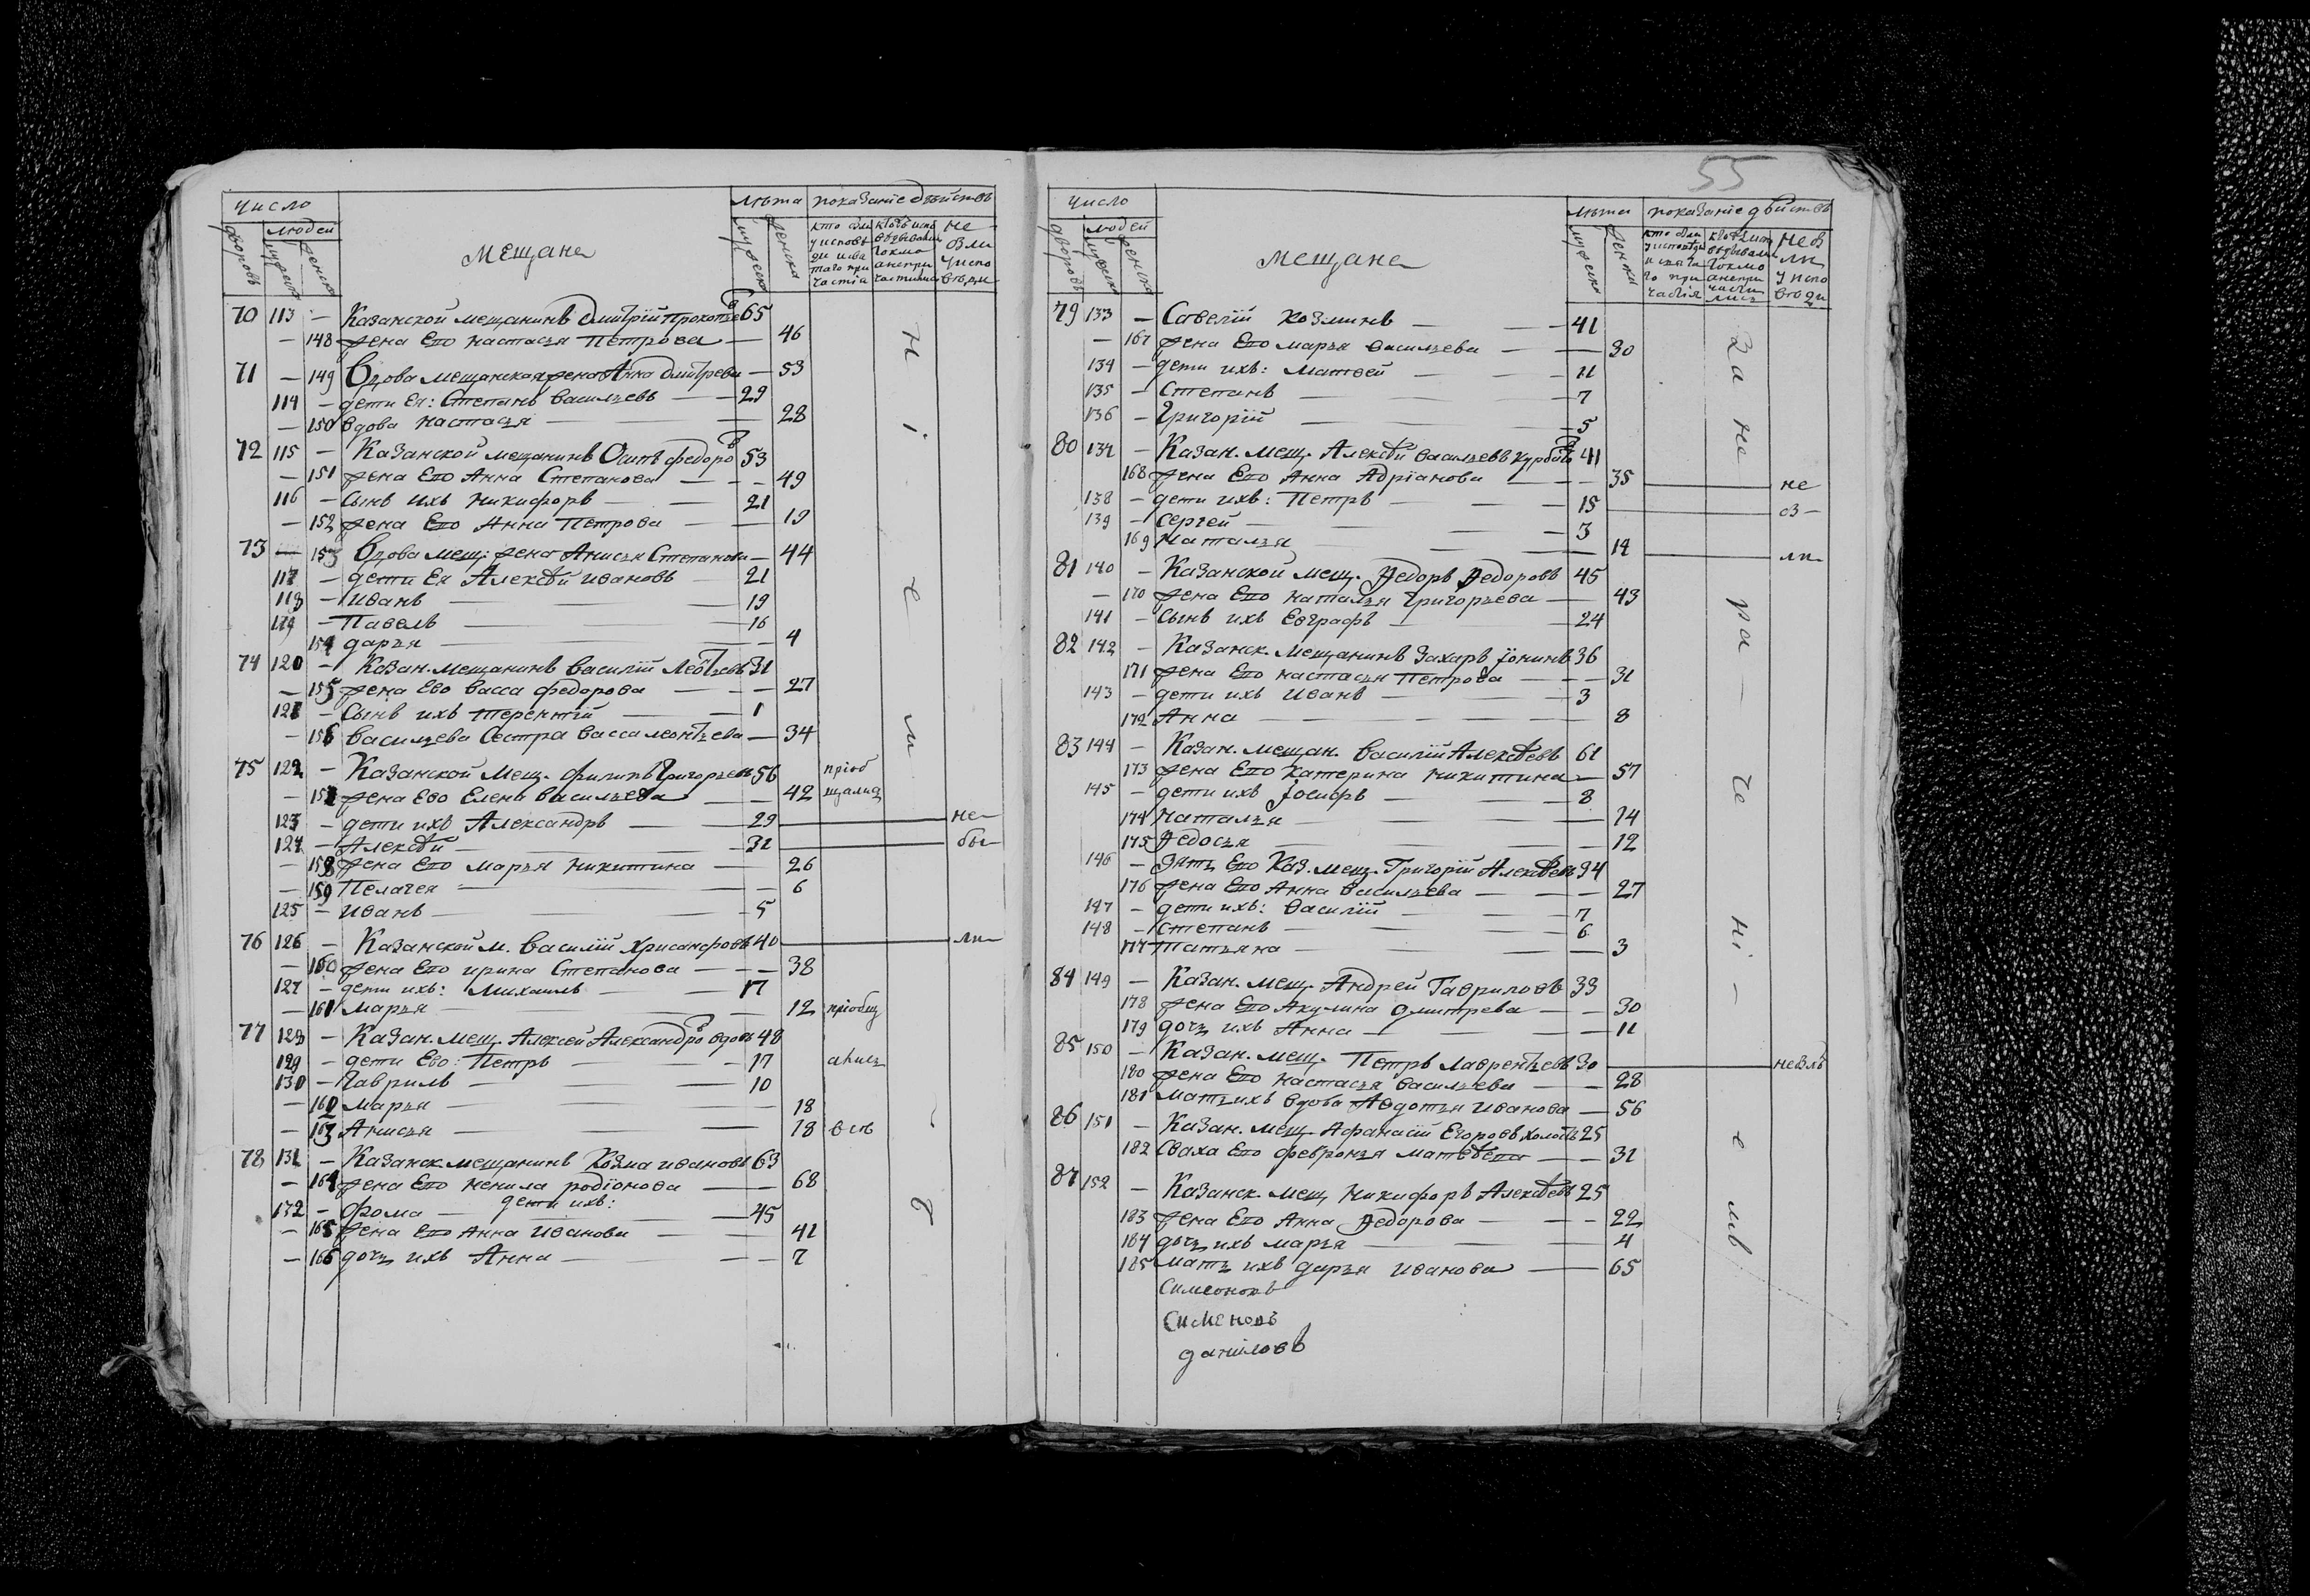 число
людей
дворовъ
мужеска
женска
мещане
лѣта
мужеска
женска
показание действъ
не были у исповеди
70 113 — Казанской мещанинъ Дмитрїй Прокопьевъ 65
— 148 жена Его настасья Петрова — 46
71 — 149 Вдова мещанская жена Анна Дмитрева — 53
114 — дети Ея: Степанъ васильевъ — 29
— 150 вдова настасья — 28
72 115 — Казанской мещанинъ Осипъ федоровъ 53
— 151 жена Его Анна Степанова — 49
116 — Сынъ ихъ никифоръ — 21
— 152 жена Его Анна Петрова — 19
73 — 153 Вдова мещ: жена Анисья Степанова — 44
117 — дети Ея Алексѣй ивановъ — 21
118 — иванъ — 19
119 — Павелъ — 16
154 дарья — 4
74 120 — Казан. мещанинъ василїй Леѡтьевъ 31
— 155 жена Ево васса федорова — 27
121 — Сынъ ихъ терентїй — 1
— 156 васильева Сестра васса леонтьева — 34
75 122 — Казанской мещ. филипъ Григорьевъ 56 прїоб
— 157 жена Ево Елена васильева — 42 щались
123 — дети ихъ Александръ — 29 — не
124 — Алексѣй — 31 — бы
— 158 жена Его марья никитина — 26
— 159 Пелагея — 6
125 — иванъ — 5
76 126 — Казанской м. василїй хрисанфовъ 40 — ли
— 160 жена Его ирина Степанова — 38
127 — дети ихъ: михаилъ — 17
— 161 марья — 12 прїобщ
77 128 — Казан. мещ. Алексей Александровъ вдовъ 48
129 — дети Ево: Петръ — 17 ались
130 — Гаврилъ — 10
— 162 марья — 18
— 163 Анисья — 18 всѣ
78 131 — Казанск. мещанинъ Козма ивановъ 63
— 164 жена Его ненила родїонова — 68
дети ихъ:
132 — фома — 45
— 165 жена Его Анна иванова — 41
— 166 дочь ихъ Анна — 7
55
число
людей
дворовъ
мужеска
женска
мещане
лѣта
мужеска
женска
показание действъ
79 133 — Савелїй козминъ — 41
— 167 жена Его марья васильева — 30
134 — дети ихъ: матвей — 11
135 — Степанъ — 7
136 — Григорїй — 5
80 137 — Казан. мещ. Алексѣй васильевъ 41
168 жена Его Анна Адрїанова — 35 — не
138 — дети ихъ: Петръ — 15 — вз
139 — сергей — 3
169 наталья — 14 — ли
81 140 — Казанской мещ. Ѳедоръ Ѳедоровъ 45
— 170 жена Его наталья Григорьева — 43
141 — Сынъ ихъ Евграфъ — 24
82 142 — Казанск. мещанинъ Захаръ їонинъ 36
171 жена Его настасья Петрова — 31
143 — дети ихъ иванъ — 3
172 Анна — 8
83 144 — Казан. мещан. василїй Алексѣевъ 61
173 жена Его катерина никитина — 57
145 — дети ихъ їосифъ — 8
174 наталья — 14
175 Ѳедосья — 12
146 — Зять Его Каз. мещ. Григорїй Алексѣевъ 34
176 жена Его Анна васильева — 27
147 — дети ихъ: василїй — 7
148 — степанъ — 6
177 татьяна — 3
84 149 — Казан. мещ. Андрей Гавриловъ 33
178 жена Его Акулина дмитрева — 30
179 дочь ихъ Анна — 11
85 150 — Казан. мещ. Петръ лаврентьевъ 30
180 жена Его настасья васильева — 28
181 мать ихъ вдова Авдотья иванова — 56
86 151 — Казан. мещ. Афанасїй Егоровъ холостъ 25
182 Сваха Его февронья матвѣева — 31
87 152 — Казанск. мещ никифоръ Алексѣевъ 25
183 жена Его Анна Ѳедорова — 22
184 дочь ихъ марья — 4
185 мать ихъ дарья иванова — 65
Симеоновъ
Сименовъ
даниловъ